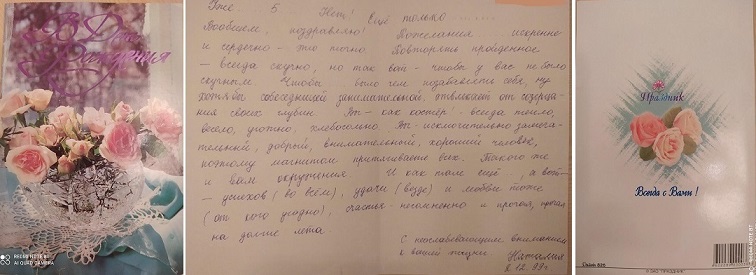 В День
Рождения
REDMI NOTE 8T
AI QUAD CAMERA
Уже 5 Нет! Ещё только
Вообщем, поздравляю! Пожелания искренно
и сердечно – это точно. Повторять пройденное
– всегда скучно, но так вот – чтобы у вас не было
скучным. Чтобы было чем позабавить себя, ну
хотя бы занимательной, отвлекает от созерца-
ния своих глубин. Вы – как костёр: всегда тепло,
весело, уютно, хлебосольно. Вы – исключительно замеча-
тельный, добрый, внимательный, хороший человек,
поэтому магнитом притягиваете всех. Такого же
и вам окружения. И как там ещё, а вот –
успехов (во всём), удачи (везде) и любви тоже
(от кого угодно), счастья – несомненно и прочая, прочая
на долгие лета.
С неослабевающим вниманием
к вашей Наталия
8.12.99г.
Праздник
Всегда с Вами!